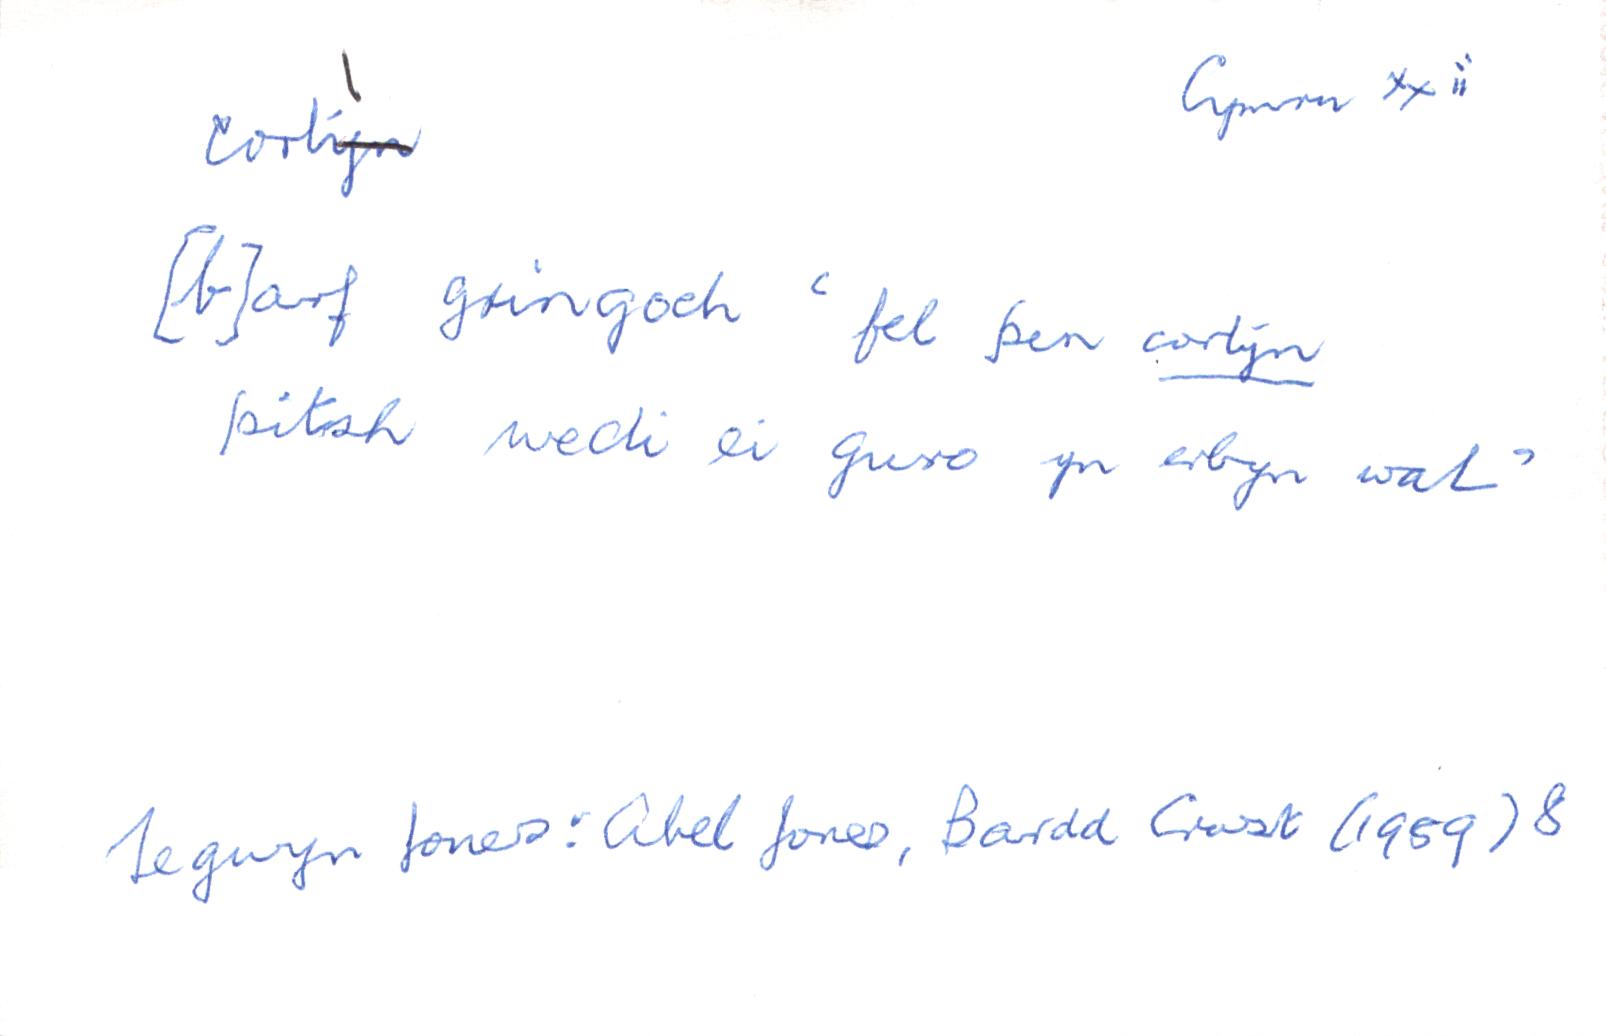 cortyn
Cymru xxii
[b]arf gringoch ‘fel pen cortyn
pitsh wedi ei guro yn erbyn wal’
Tegwyn Jones: Abel Jones, Bardd Crwst (1989) 8